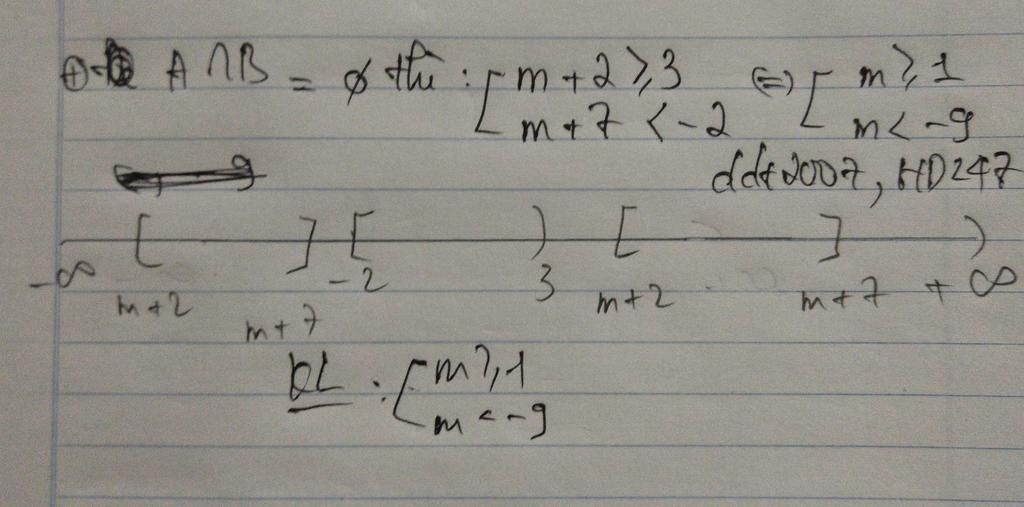 ⊕ A ∩ B = ∅ thì : [ m + 2 ≥ 3 ⇔ [ m ≥ 1
m + 7 < -2 m < -9
ddt2007, HD247
[ ] [ ) [ ] )
-∞ m+2 m+7 -2 3 m+2 m+7 +∞
KL : [ m ≥ 1
m < -9